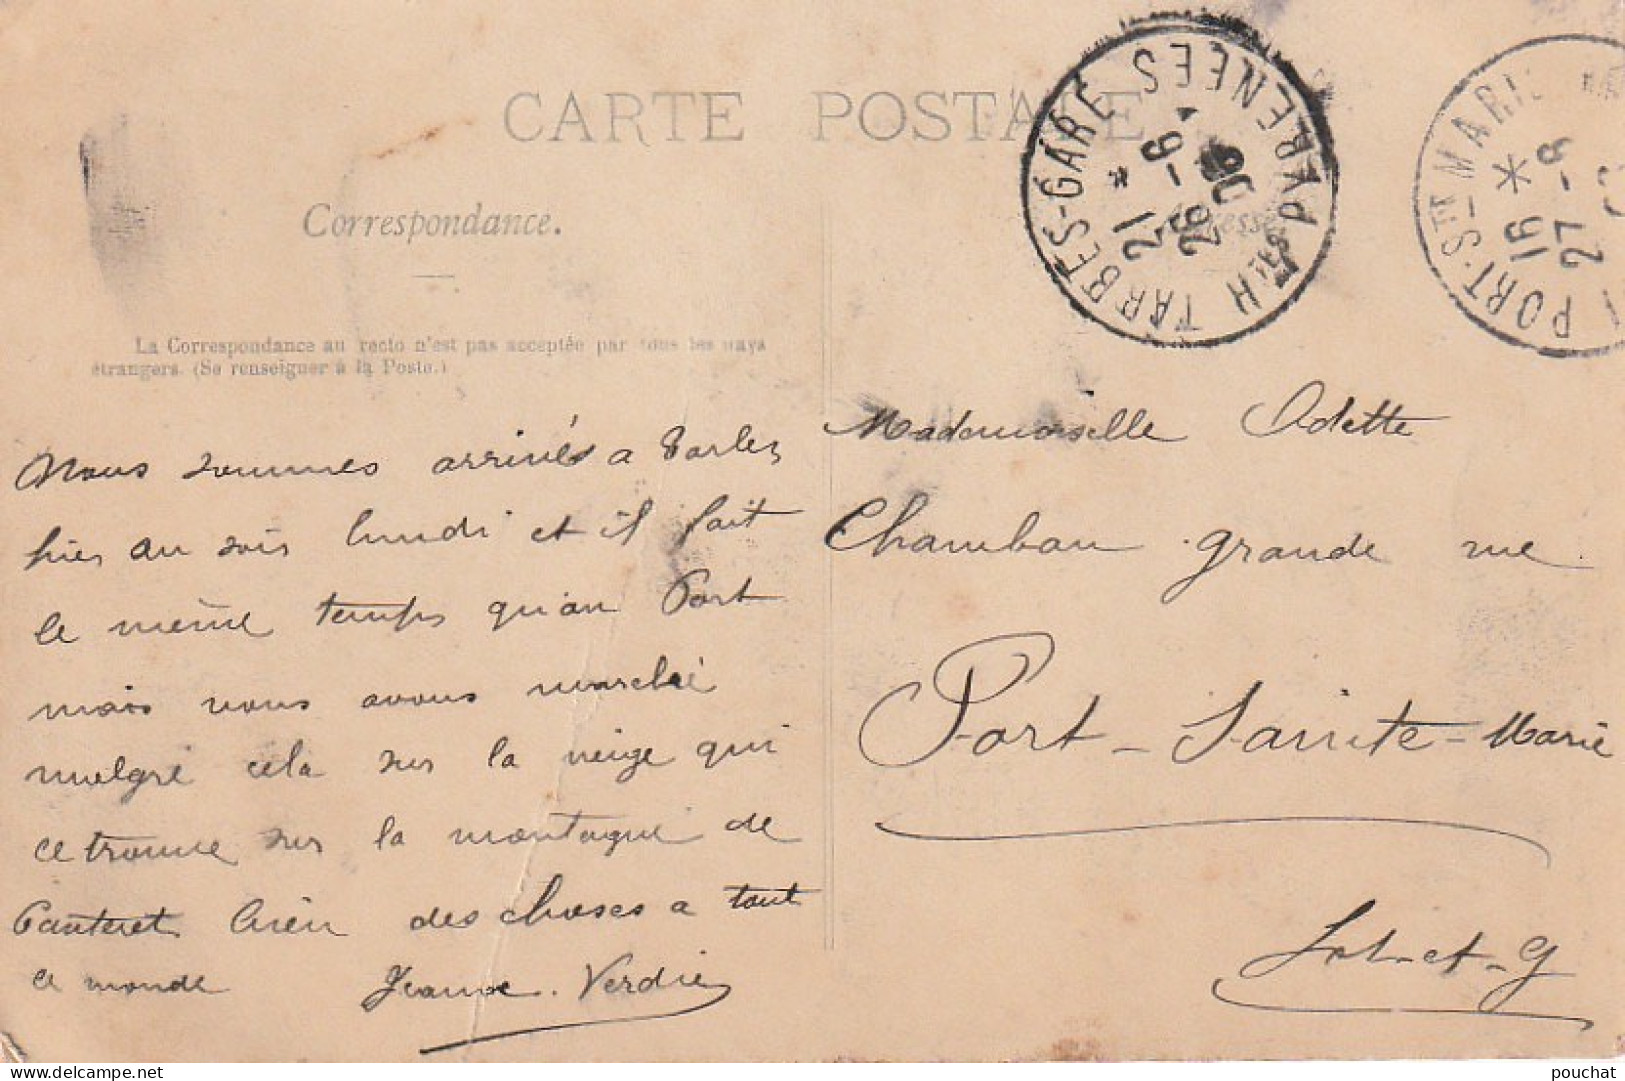 CARTE POSTALE
Correspondance.
La Correspondance au recto n'est pas acceptée par tous les pays
étrangers. (Se renseigner à la Poste.)
TARBES-GARE
Htes PYRENEES
21
26
9-9
PORT-Ste MARIE
16
27-8
Nous sommes arrivés a Tarbes
hier au soir lundi et il fait
le même temps qu'au Port
mais nous avons marché
malgré cela sur la neige qui
ce trouve sur la montagne de
Cauteret bien des choses a tout
ce monde Jeanne. Verdier
Mademoiselle Odette
Chambon grande rue
Port-Sainte-Marie
Lot-et-G
pouchat